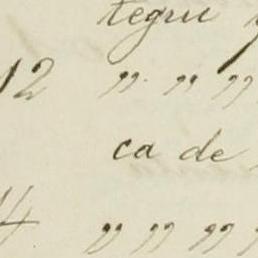 tegru
12 " " "
ca de
4 " " " "